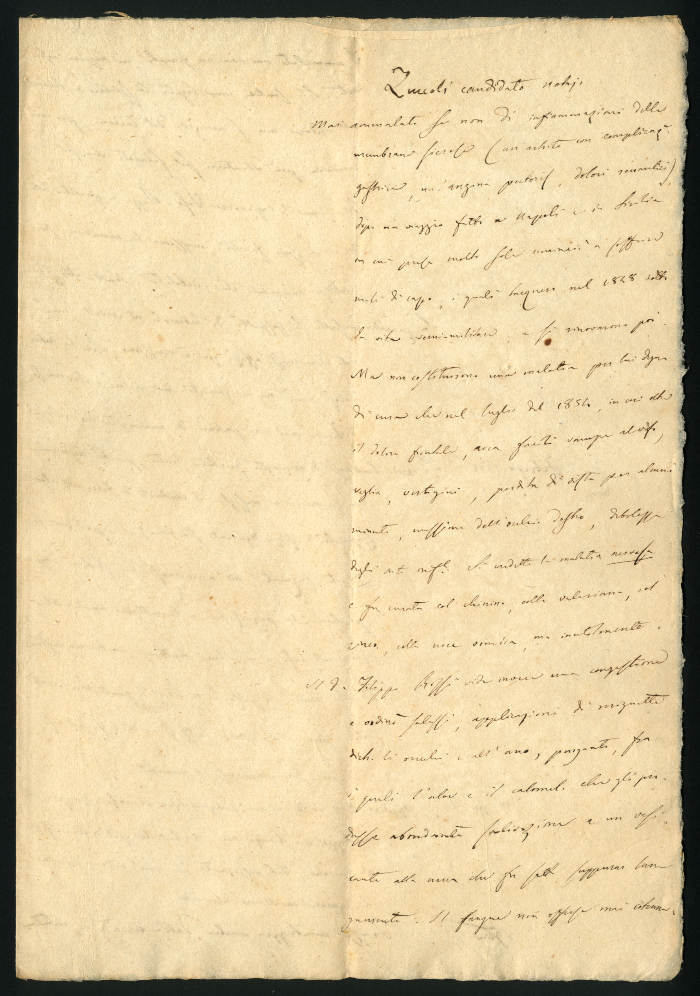 Zuccoli candidato notajo
Mai ammalato se non di infiammazioni delle
membrane sierose (un artrite con complicaz.
gastrica, un'angina pectoris, dolori reumatici)
dopo un viaggio fatto a Napoli e in Sicilia
in cui prese molto sole cominciò a soffrire
mali di capo, i quali tacquero nel 1848 sotto
la vita semimilitare, e si rinnovarono poi.
Ma non costituirono una malattia per lui degna
di cura che nel luglio del 1854, in cui oltre
il dolore frontale, aveva forti vampe al viso,
veglia, vertigini, perdita di vista per alcuni
minuti, massime dell'occhio destro, debolezza
degli arti inf.i Si credette la malattia nervosa
e fu curata col chinino, colla valeriana, col
zinco, colla noce vomica, ma inutilmente.
Il D. Filippo Rossi vide invece una congestione
e ordinò salassi, applicazioni di mignatte
dietro li orecchi e all'ano, purganti, fra
i quali l'aloe e il calomel. che gli pro-
dusse abbondante salivazione e un vessi-
cante alla nuca che fu fatto suppurare lun-
gamente. Il sangue non offerse mai cotenna.